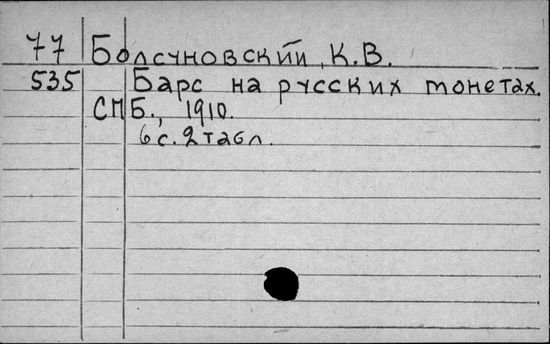 77 Болсуновский, К.В.
535 Барс на русских монетах.
СПБ., 1910.
6 с. 2 табл.